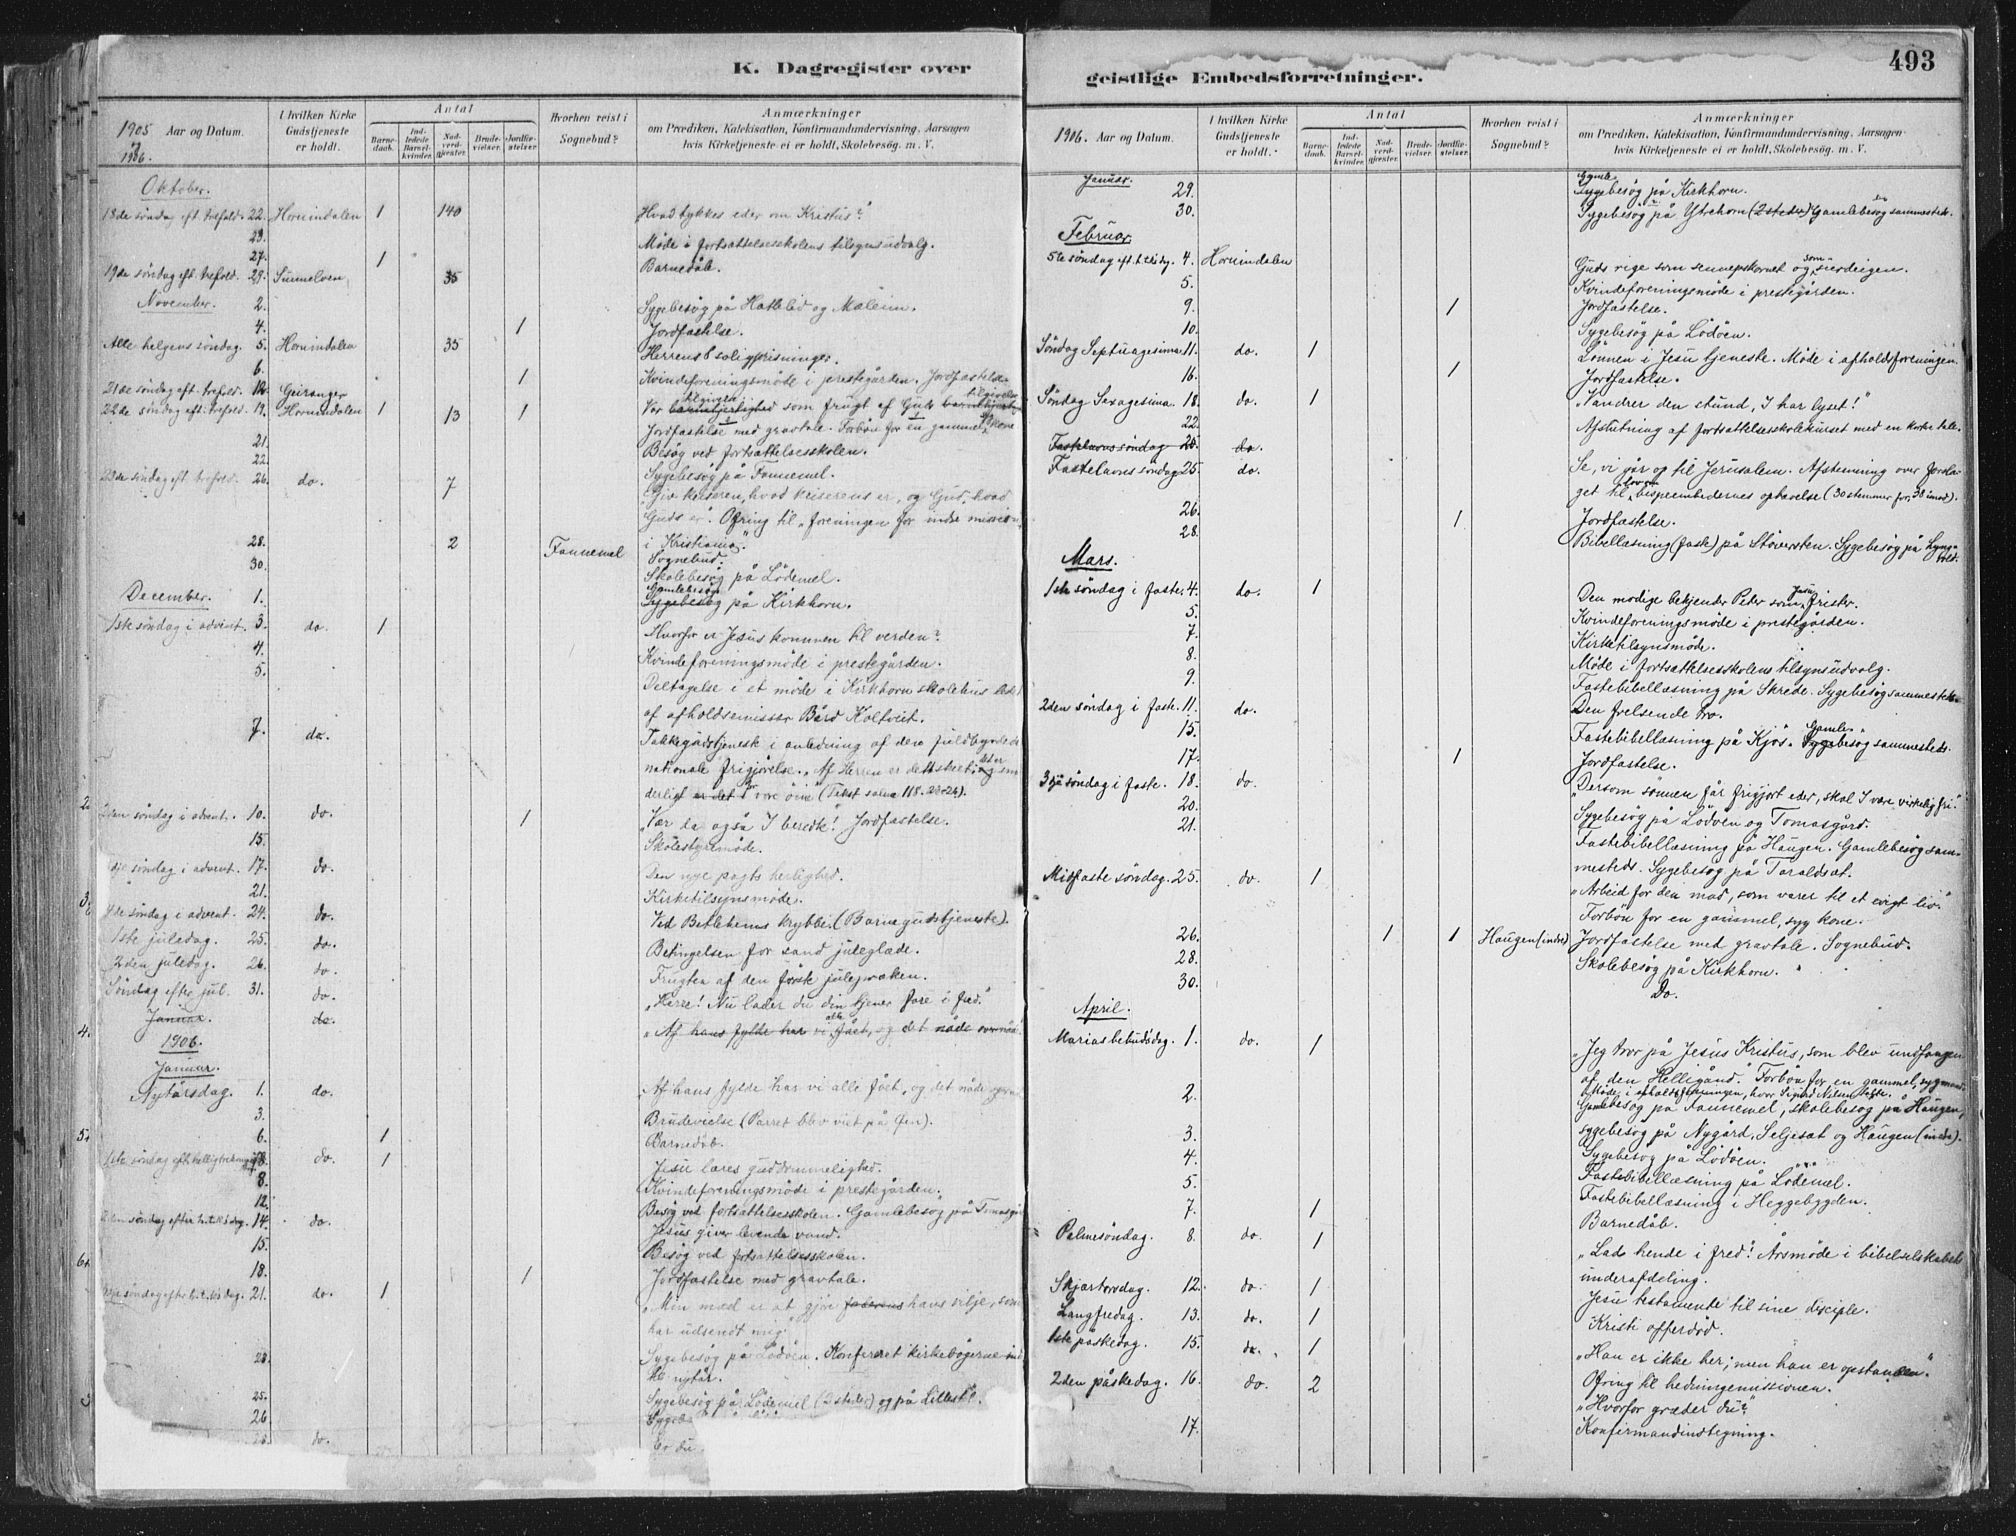 K. Dagregister over
1905 Aar og Datum.
1906.
I hvilken Kirke Gudstjeneste er holdt.
Antal
Barnedaab.
Indledede Barselkvinder.
Nadverdgjester.
Brudevielser.
Jordfæstelser.
Hvorhen reist i Sognebud?
Anmærkninger
om Prædiken, Katekisation, Konfirmandundervisning, Aarsagen
hvis Kirketjeneste ei er holdt, Skolebesøg m. V.
Oktober.
18de søndag eft. trefold. 22. Hornindalen 1 140 Hvad tykkes eder om Kristus?
23. Møde i fortsættelsesskolens tilsynsudvalg.
27. 1 Barnedåb.
19de søndag eft. trefold. 29. Sunnelven 35
November. 2. Sygebesøg på Hattelid og Maleim.
4. 1 Jordfæstelse.
Alle helgens søndag. 5. Hornindalen 35 Herrens 8 saligprisninger.
6. 1 Kvindeforeningsmøde i prestegården. Jordfæstelse
21de søndag eft. trefold. 12. Geiranger
22de søndag eft. trefold. 19. Hornindalen 1 13 1 Vor tilgiven som frugt af Guds tilgivelse
Jordfæstelse med gravtale. Forbøn for en gammel, syg kone
21. Besøg ved fortsættelsesskolen.
22. Sygebesøg på Fannemel.
23de søndag eft. trefold. 26. do. 7 "Giv keiseren, hvad keiserens er, og Gud, hvad
Guds er". Ofring til "foreningen for indre mission
i Kristiania".
28. 2 Fannemel Sognebud.
30. Skolebesøg på Lødemel.
December. 1. Gamlebesøg på Kirkhorn.
1ste søndag i advent. 3. do. 1 Hvorfor er Jesus kommen til verden?
4. Kvindeforeningsmøde i prestegården.
5. Deltagelse i et møde i Kirkhorn skolehus
af afholdsemissær Bård Kolltveit.
7. do. Takkegudstjeneste i anledning af den fuldbyrdede
nationale frigjørelse. "Af Herren er dette skeet; det er
derligt er det for vore øine" (Tekst salme 118. 23-24).
2den søndag i advent. 10. do. 1 "Vær da også I beredte! Jordfæstelse.
15. Skolestyremøde.
3dje søndag i advent. 17. do. Den nye pagts herlighed.
21. Kirketilsynsmøde.
4de søndag i advent. 24. do. Ved Betlehems krybbe. (Barnegudstjeneste).
1ste juledag. 25. do. Betingelsen for sand juleglæde.
2den juledag. 26. do. Frugten af den første julepræken.
Søndag efter jul. 31. do. "Herre! Nu lader du din tjener fare i fred."
Januar. do. "Af hans fylde har vi alle fået, og det nåde over nåde
1906.
Januar.
Nytårsdag. 1. do. Af hans fylde har vi alle fået, og det nåde over
3. Brudevielse (Parret blev viet på Gen).
6. 1 Barnedåb.
1ste søndag eft. helligtrekong. do. 1 Jesu læres guddommelighed.
8. Kvindeforeningsmøde i prestegården.
12. Besøg ved fortsættelsesskolen. Gamlebesøg på Tomasgå
2den søndag efter h. tr. k. dag. 14. do. Jesus giver levende vand.
15. Besøg ved fortsættelsesskolen.
18. 1 Jordfæstelse med gravtale.
3dje søndag efter h. tr. k. dag. 21. do. 1 "Min mad er at gjøre faderens hans vilje, som
har udsendt mig".
23. Sygebesøg på Lødøen. Konfereret kirkebøgerne
til nytår.
25. Sygebesøg på Lødemel (2 steder) og på Lillestøl.
26 Sygeb
28. do. Er du
geistlige Embedsforretninger.
493
1906. Aar og Datum.
I hvilken Kirke Gudstjeneste er holdt.
Antal
Barnedaab.
Indledede Barselkvinder.
Nadverdgjester.
Brudevielser.
Jordfæstelser.
Hvorhen reist i Sognebud?
Anmærkninger
om Prædiken, Katekisation, Konfirmandundervisning, Aarsagen
hvis Kirketjeneste ei er holdt, Skolebesøg m. V.
Januar. 29. Gamle Sygebesøg på Kirkhorn.
30. Sygebesøg på Ytrehorn (2 steder) Gamlebesøg sammesteds.
Februar.
5te søndag eft. h. tr. k. dg. 4. Hornindalen Guds rige som sennepskornet og som surdeigen.
5. Kvindeforeningsmøde i prestegården.
9. 1 Jordfæstelse.
10. Sygebesøg på Lødøen.
Søndag Septuagesima 11. do. 1 Lønnen i Jesu tjeneste. Møde i afholdsforeningen.
16. 1 Jordfæstelse.
Søndag Sexagesima. 18. do. 1 "Vandrer den stund, I har lyset!"
22. Afslutning af fortsættelsesskolekurset med en kortere tale.
Fastelavnssøndag 25. do.
Fastelavns søndag 25. do. Se, vi går op til Jerusalem. Afstemning over forsla-
get til lov om bispeembedernes ophævelse (30 stemmer for, 38 imod).
26. 1 Jordfæstelse.
28. Bibellæsning (faste) på Støversten. Sygebesøg på Lyng-
Mars. vold.
1ste søndag i faste. 4. do. 1 Den modige bekjender Peter som Jesu frister.
5. Kvindeforeningsmøde i prestegården.
7. Kirketilsynsmøde.
8. Møde i fortsættelsesskolens tilsynsudvalg.
9. Fastebibellæsning på Skrede. Sygebesøg sammesteds.
2den søndag i faste. 11. do. Den frelsende tro.
15. Fastebibellæsning på Kjøs. Gamle- Sygebesøg sammesteds.
17. 1 Jordfæstelse.
3dje søndag i faste. 18. do. "Dersom sønnen får frigjort eder, skal I være virkelig fri."
20. Sygebesøg på Lødøen og Tomasgård.
21. Fastebibellæsning på Haugen. Gamlebesøg sam-
mesteds. Sygebesøg på Taraldset.
Midfaste søndag. 25. do. 1 "Arbeid for den mad, som varer til et evigt liv."
Forbøn for en gammel, syg kone.
26. 1 1 Haugen (indre) Jordfæstelse med gravtale. Sognebud.
28. Skolebesøg på Kirkhorn.
30. Do.
April.
Marias bebudsdag. 1. do. 1 "Jeg tror på Jesus Kristus, som blev undfangen
af den Helligånd." Forbøn for en gammel, syg mand.
Møde i afholdsforeningen, hvor Sigurd Nilsen talte.
2. Gamlebesøg på Fannemel, skolebesøg på Haugen,
3. sygebesøg på Nygård, Seljeset og Haugen (indre).
4. Sygebesøg på Lødøen.
5. Fastebibellæsning på Lødemel.
Fastebibellæsning i Heggebygden.
7. 1 Barnedåb.
Palmesøndag. 8. do. 1 "Lads hende i fred! Årsmøde i bibelselskabets
underafdeling.
Skjærtorsdag. 12. do. 1 Jesu testamente til sine disciple.
Langfredag. 13. do. 1 Kristi offerdød.
1ste påskedag. 15. do. 1 "Han er ikke her; men han er opstanden."
2den påskedag. 16. do. 2 Ofring til hedningemissionen.
"Hvorfor græder du?"
17. Konfirmandindtegning.